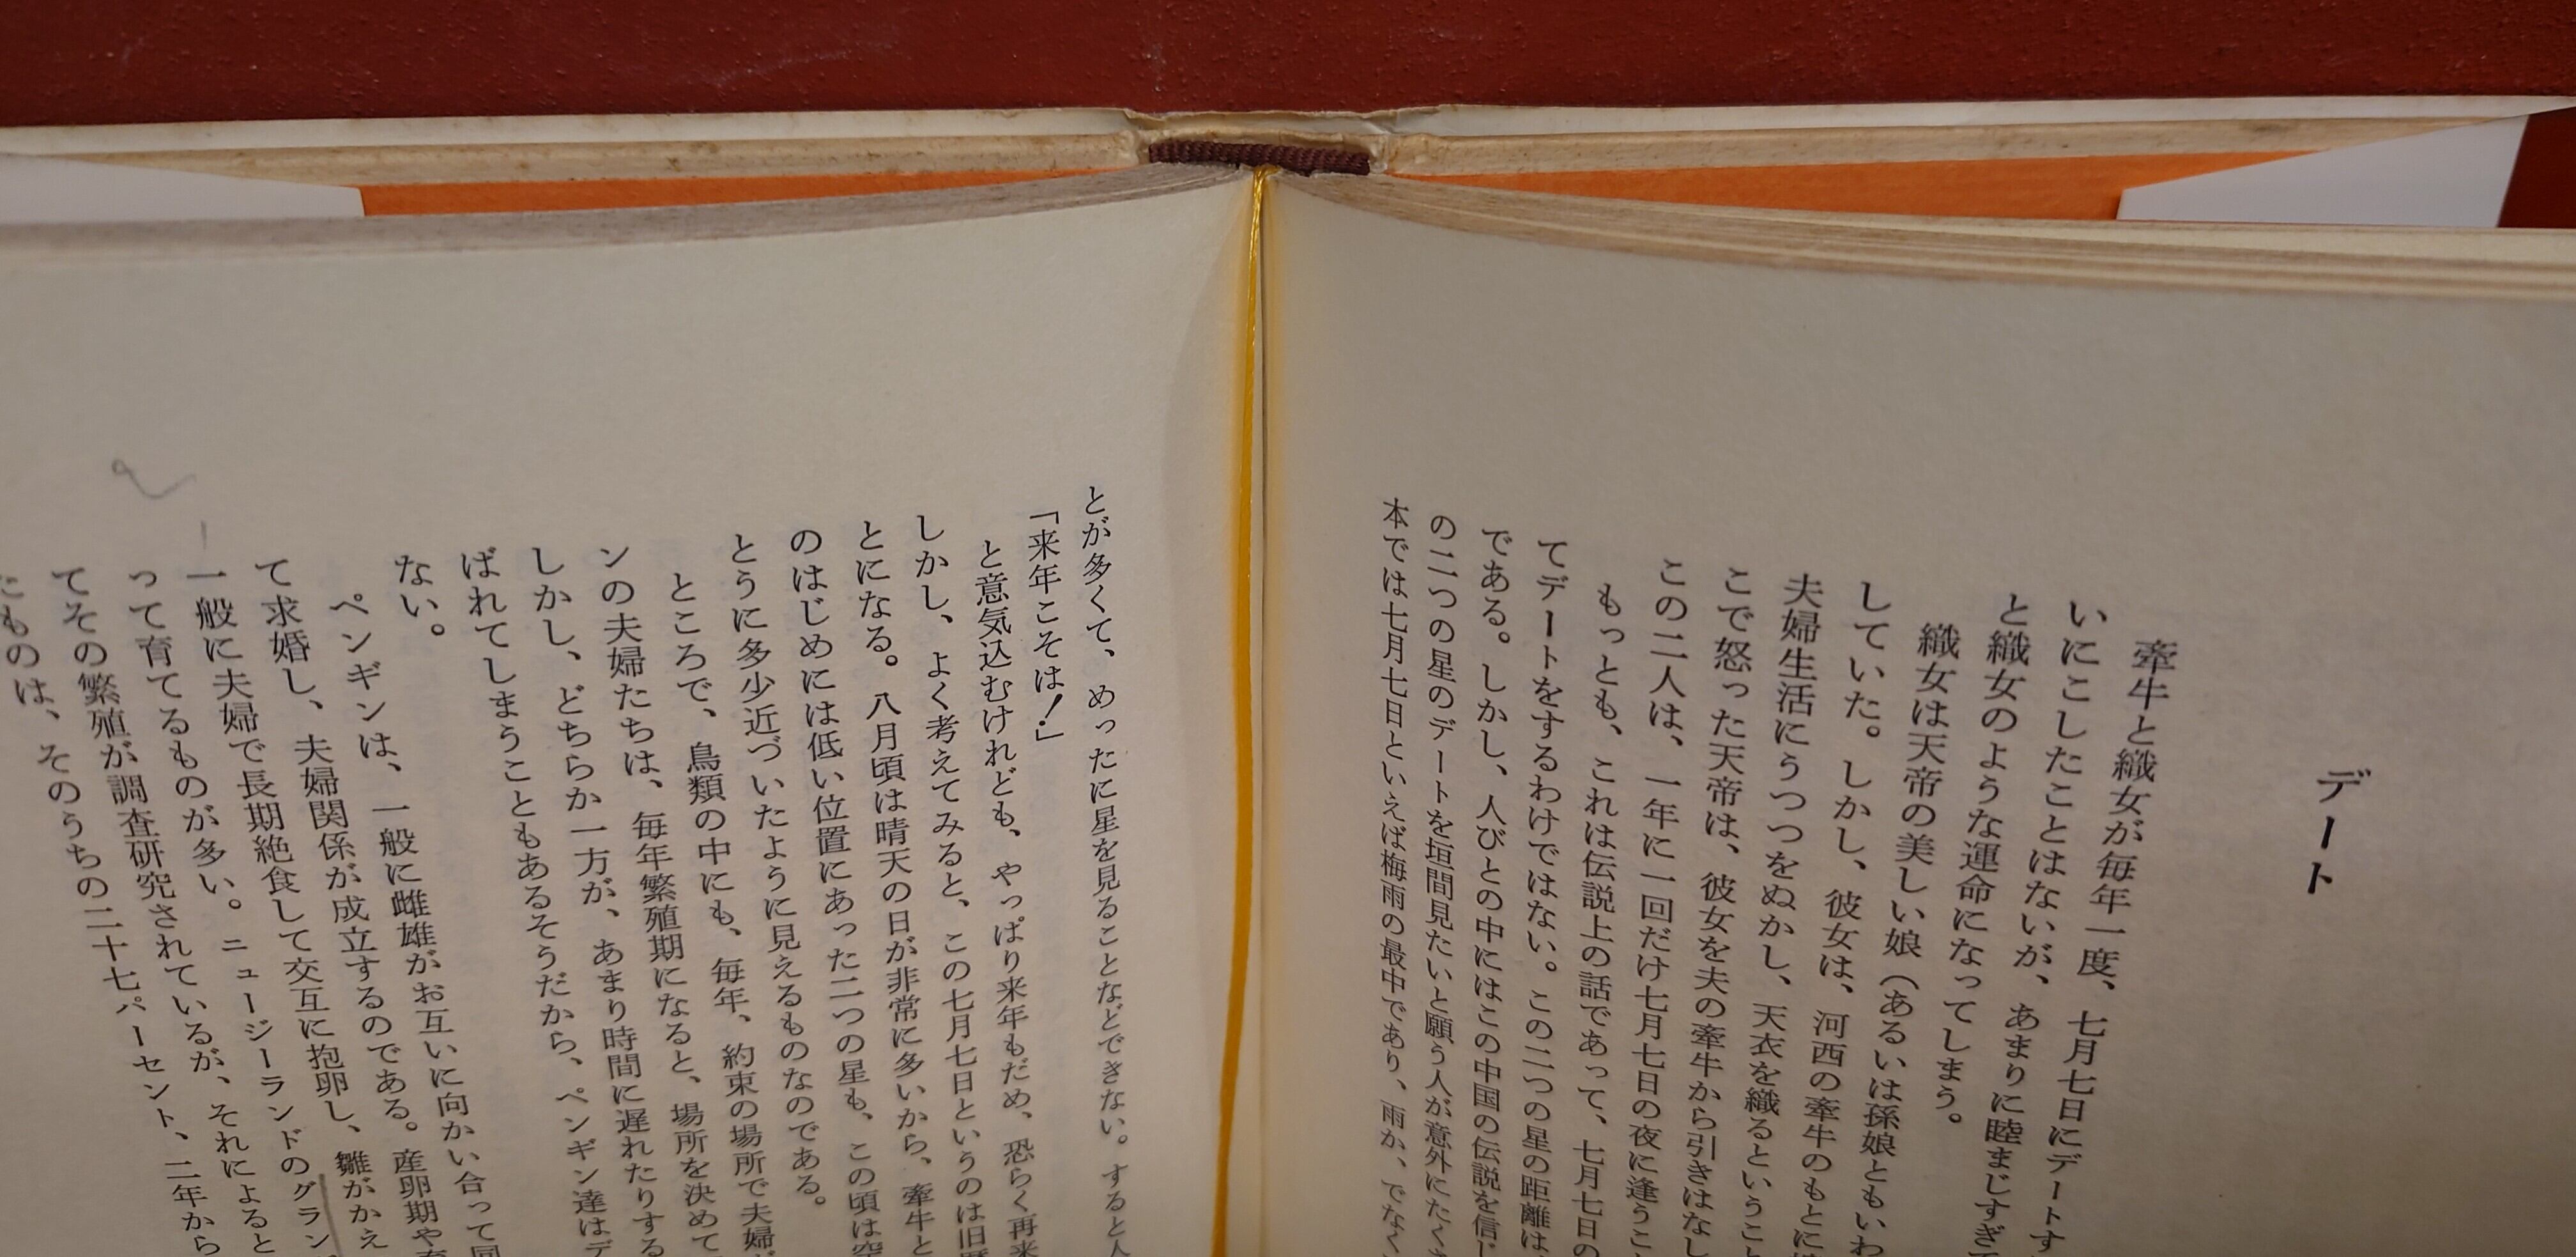 デート
牽牛と織女が毎年一度、七月七日にデートす
いにこしたことはないが、あまりに睦まじすぎて
と織女のような運命になってしまう。
織女は天帝の美しい娘（あるいは孫娘ともいわ
していた。しかし、彼女は、河西の牽牛のもとに
夫婦生活にうつつをぬかし、天衣を織るということ
こで怒った天帝は、彼女を夫の牽牛から引きはなし
この二人は、一年に一回だけ七月七日の夜に逢うこ
もっとも、これは伝説上の話であって、七月七日の
てデートをするわけではない。この二つの星の距離は
である。しかし、人びとの中にはこの中国の伝説を信じ
の二つの星のデートを垣間見たいと願う人が意外にたく
本では七月七日といえば梅雨の最中であり、雨か、でなく
とが多くて、めったに星を見ることなどできない。すると人
「来年こそは！」
と意気込むけれども、やっぱり来年もだめ、恐らく再来
しかし、よく考えてみると、この七月七日というのは旧暦
とになる。八月頃は晴天の日が非常に多いから、牽牛と
のはじめには低い位置にあった二つの星も、この頃は空
とうに多少近づいたように見えるものなのである。
ところで、鳥類の中にも、毎年、約束の場所で夫婦が
ンの夫婦たちは、毎年繁殖期になると、場所を決めて
しかし、どちらか一方が、あまり時間に遅れたりする
ばれてしまうこともあるそうだから、ペンギン達はデ
ない。
ペンギンは、一般に雌雄がお互いに向かい合って同
て求婚し、夫婦関係が成立するのである。産卵期や
一般に夫婦で長期絶食して交互に抱卵し、雛がかえ
って育てるものが多い。ニュージーランドのグラン
てその繁殖が調査研究されているが、それによると
たものは、そのうちの二十七パーセント、二年から